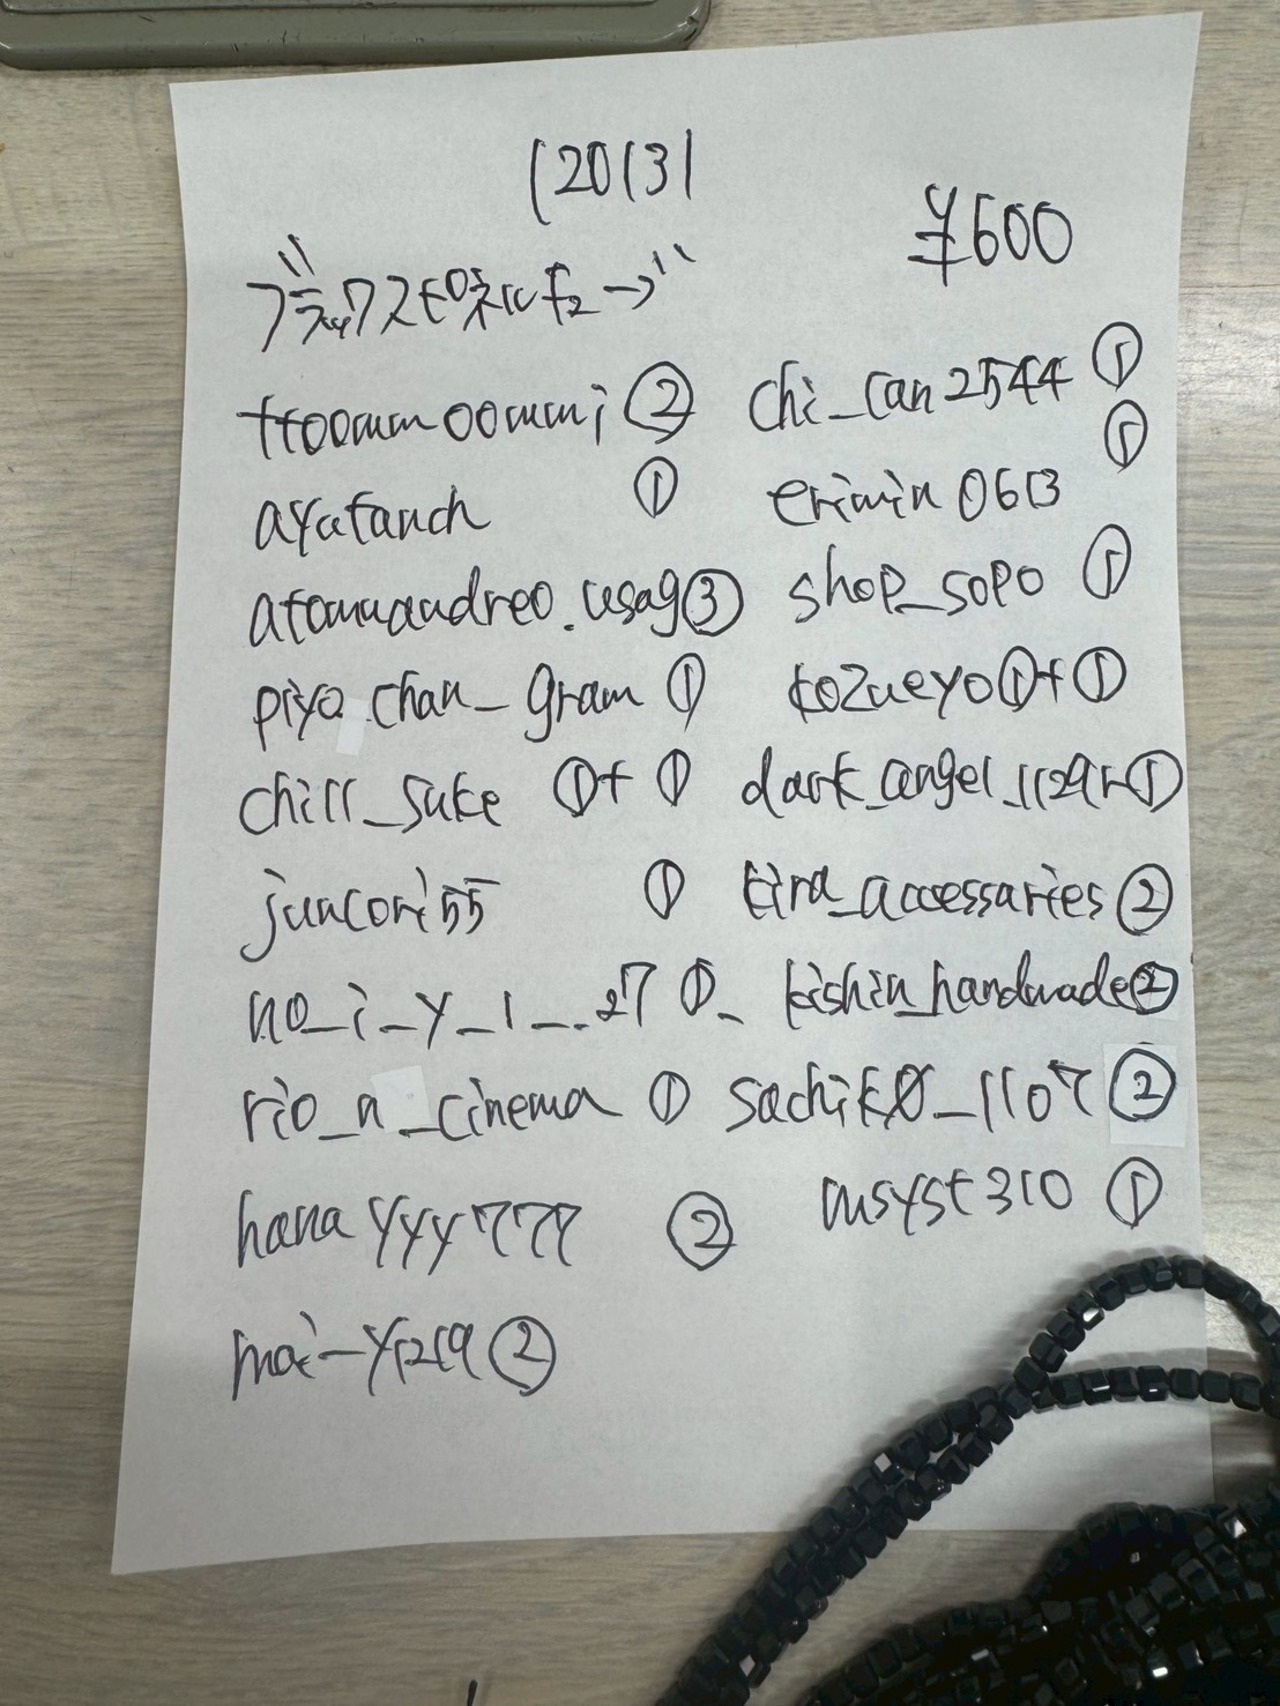 120131
¥600
ttoommoommi ② chi_can2544 ①
ayatanch ① erimin0613 ①
atomuandreo.usag③ shop_sopo ①
piyo.chan_gram ① kozueyo①+①
chill_suke ①+① dark_angel_1129h①
juncori55 ① kira_accessaries②
no_i_y_1__.27 ①_ kishin_handmade②
rio_n_cinema ① sachik0_1107 ②
hanayyy777 ② msyst310 ①
mai-y1219 ②